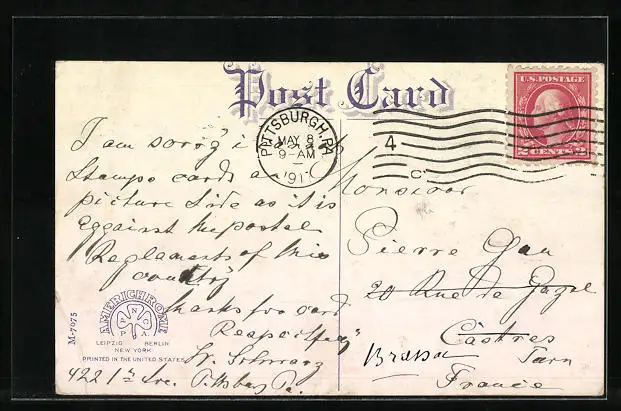 Post Card
U.S. POSTAGE
2 CENTS 2
PITTSBURGH, PA
MAY 8
9-AM
191
4
C
I am sorry i
Stamps cards
picture side as it is
eggainst the postal
Reglaments of this
country
thanks for card
Respectfully
W. Schwarz
422 1st Ave. Pittsburg Pa.
Monsieur
Pierre Gau
20 Rue de
Castres
Tarn
France
AMERICHROME
A N C
P A.
LEIPZIG BERLIN
NEW YORK
PRINTED IN THE UNITED STATES
M-7075